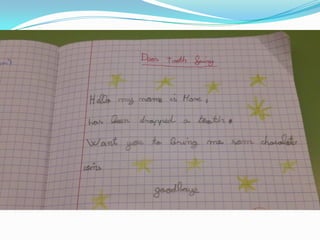 Dear Tooth Fairy
Hello my name is
has been dropped a teeth.
Want you to bring me som chocolate
coins
goodbaye